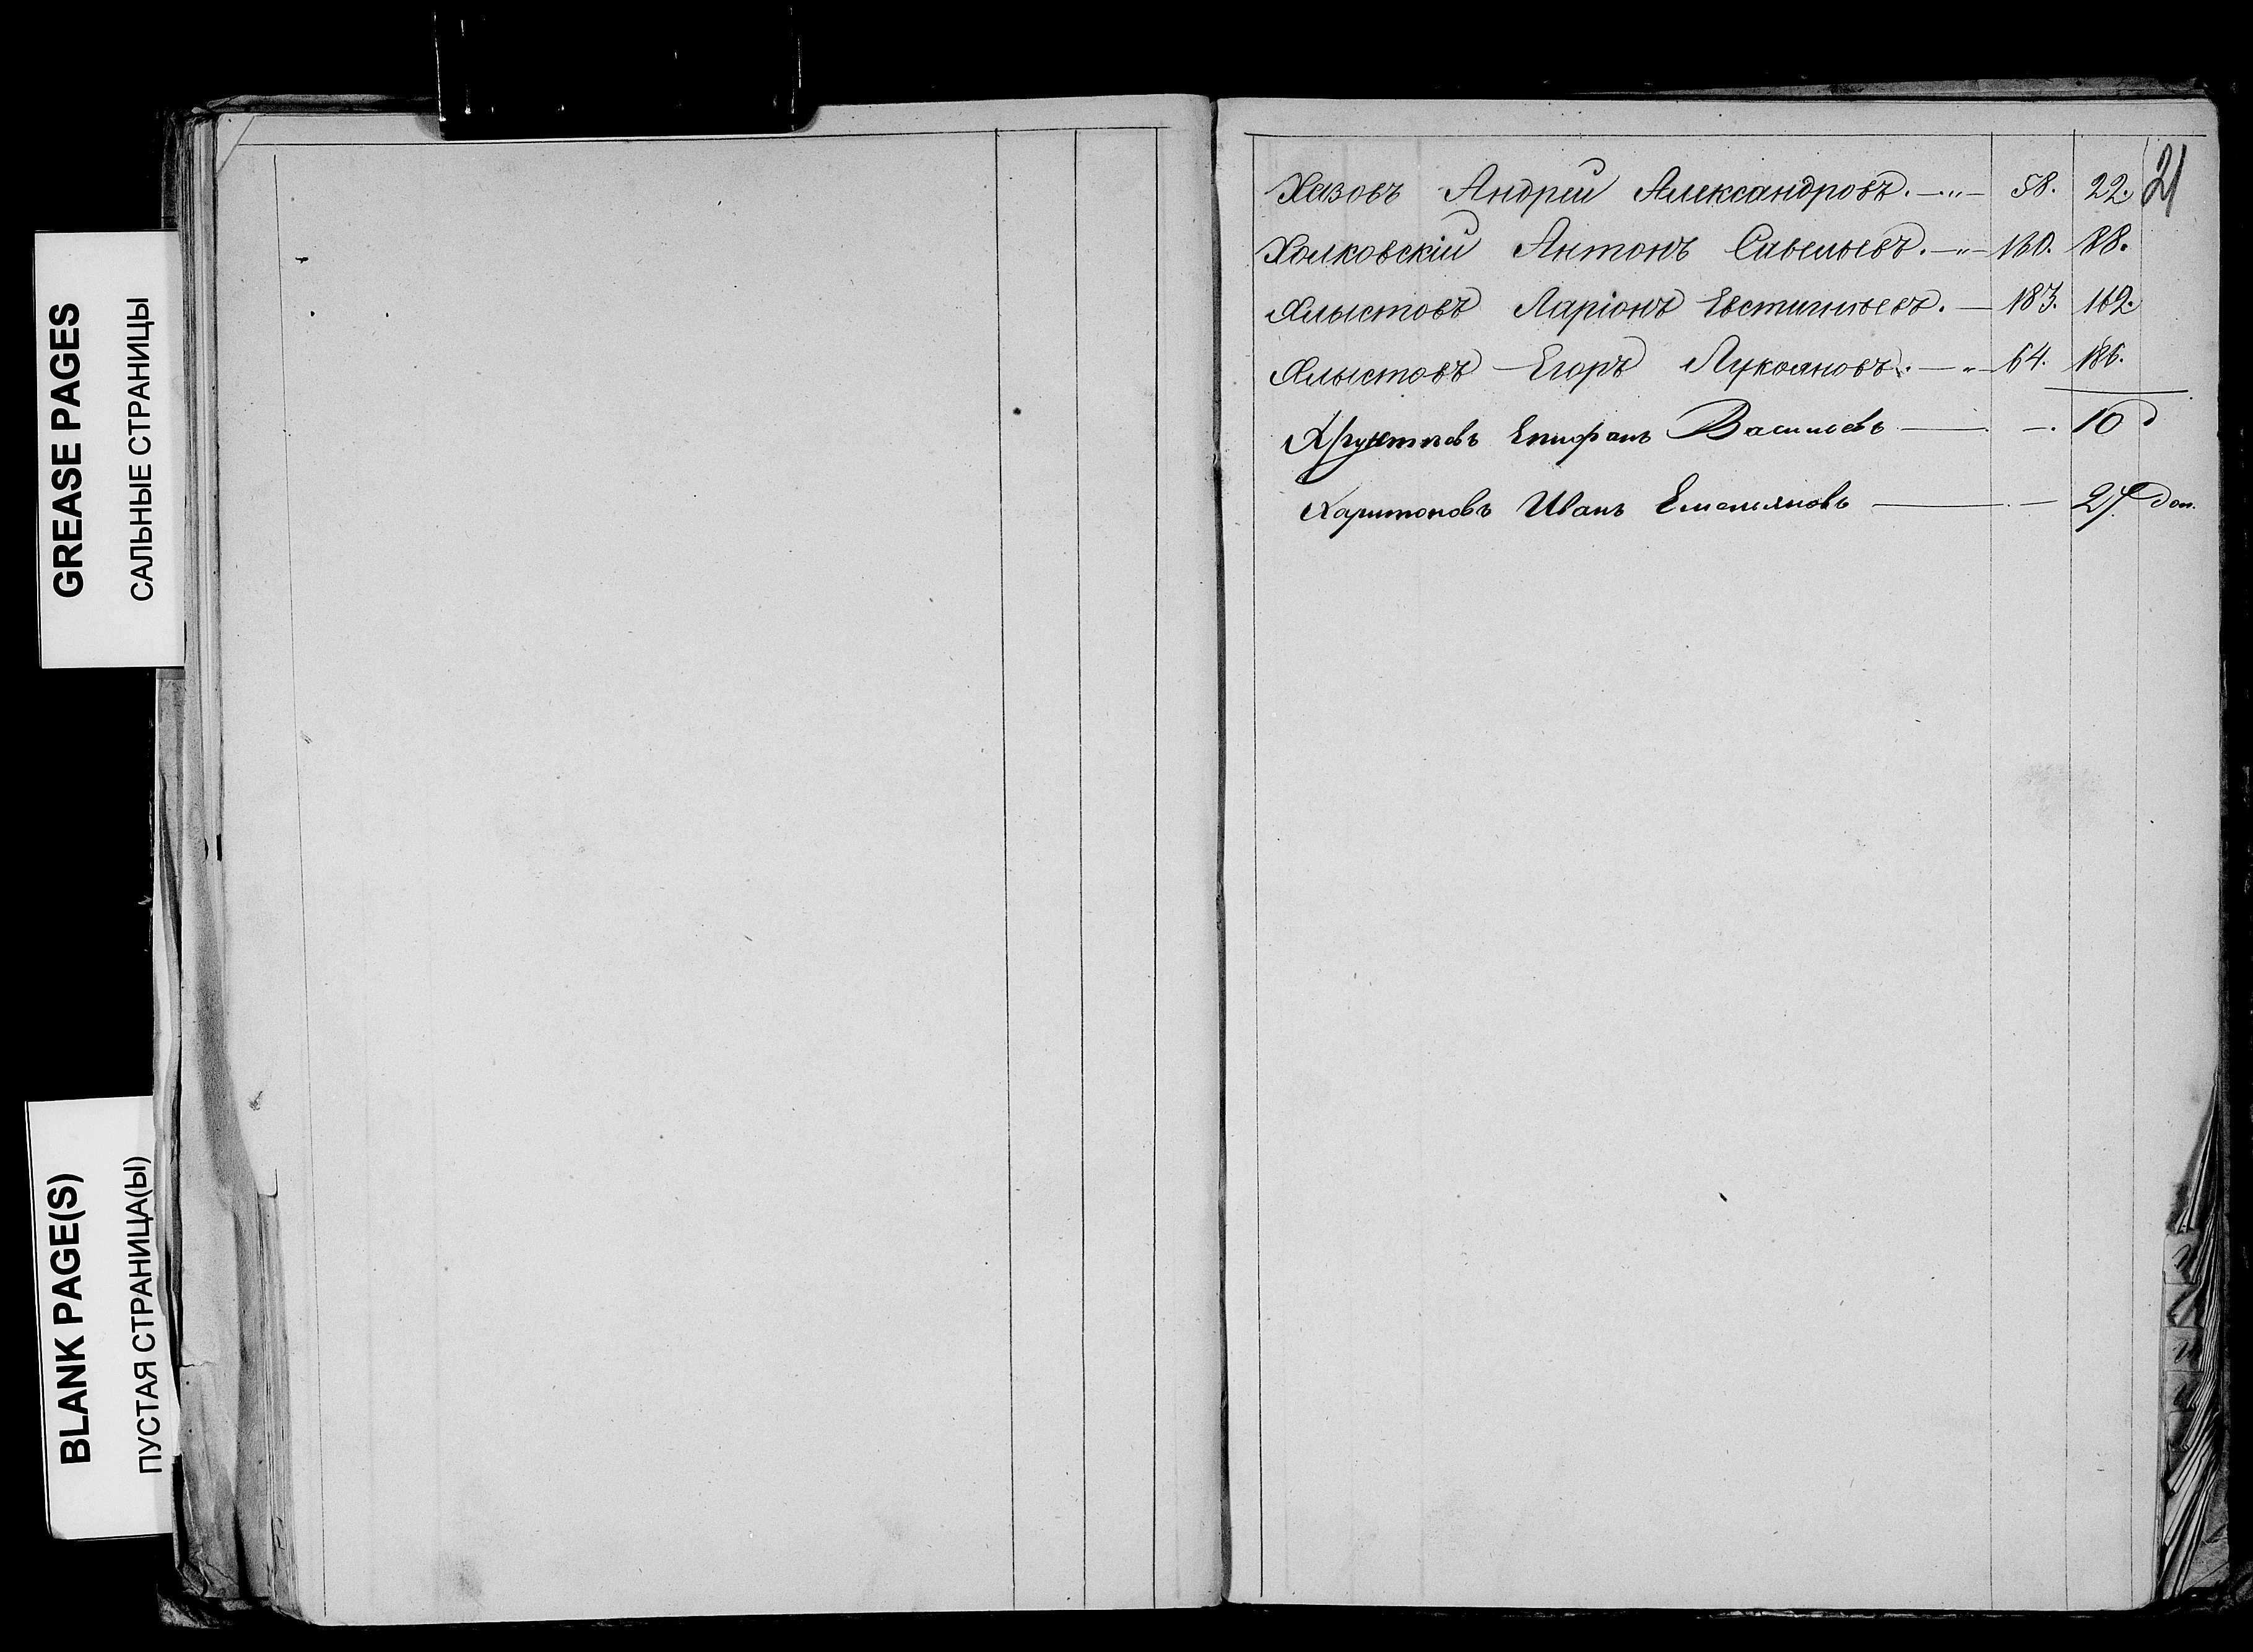 GREASE PAGES
САЛЬНЫЕ СТРАНИЦЫ
BLANK PAGE(S)
ПУСТАЯ СТРАНИЦА(Ы)
21
Хазовъ Андрей Александровъ. —„— 58. 22.
Холковскій Антонъ Савельевъ. —„— 130. 88.
Хлыстовъ Ларіонъ Евстигнѣевъ. — 183. 162.
Хлыстовъ Егоръ Лукояновъ. —„— 64. 186.
Епифанъ Васильевъ — —. 10 д
Харитоновъ Иванъ Емельяновъ — — 27 доп.